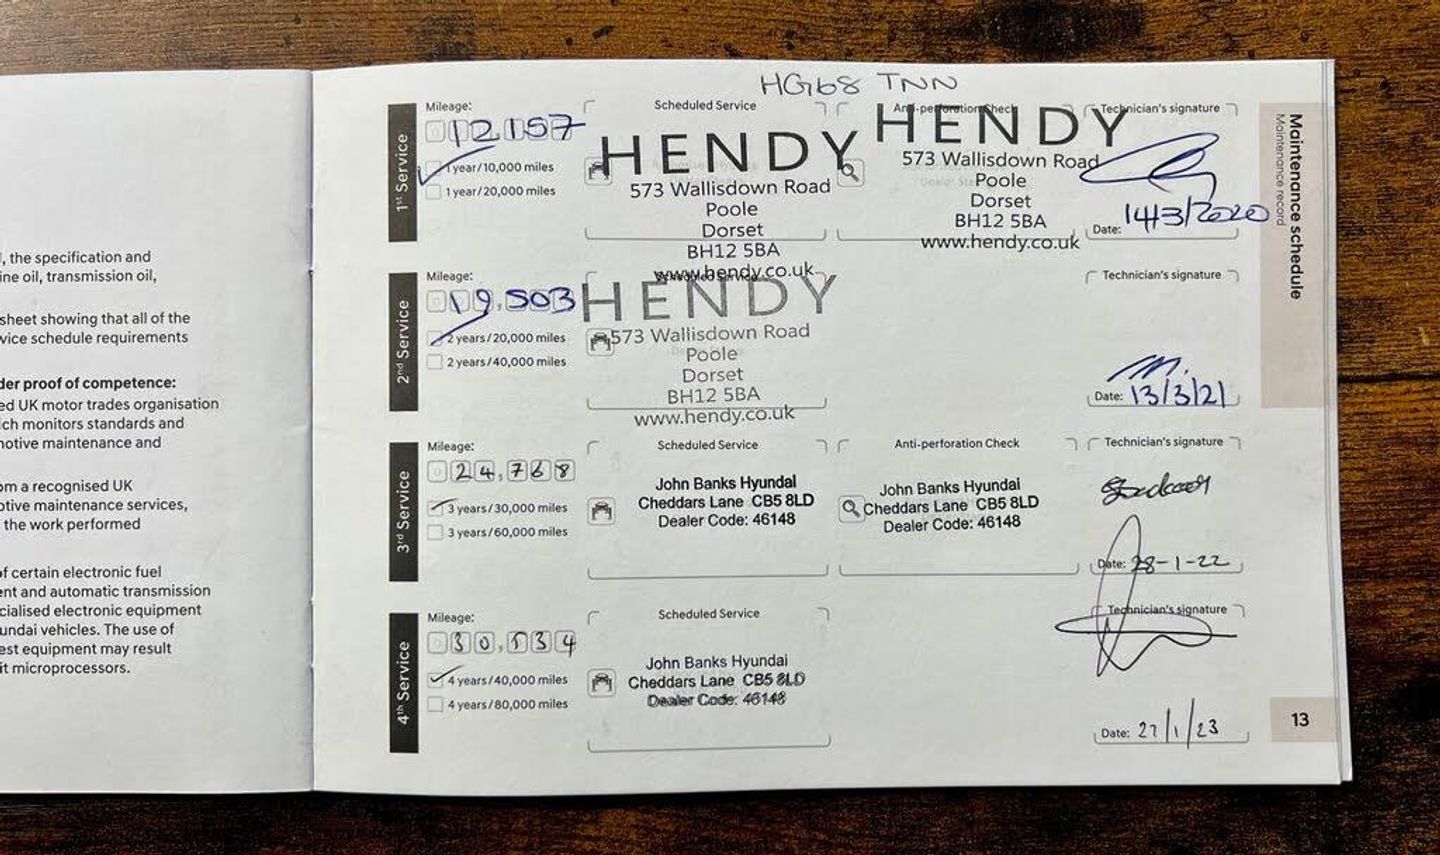 , the specification and
ine oil, transmission oil,
sheet showing that all of the
vice schedule requirements
der proof of competence:
ed UK motor trades organisation
ch monitors standards and
notive maintenance and
om a recognised UK
otive maintenance services,
the work performed
of certain electronic fuel
ent and automatic transmission
cialised electronic equipment
undai vehicles. The use of
est equipment may result
it microprocessors.
HG68 TNN
1st Service
Mileage:
12157
1 year/10,000 miles
1 year/20,000 miles
Scheduled Service
HENDY
573 Wallisdown Road
Poole
Dorset
BH12 5BA
www.hendy.co.uk
Anti-perforation Check
HENDY
573 Wallisdown Road
Poole
Dorset
BH12 5BA
www.hendy.co.uk
Technician's signature
Date: 14/3/2020
2nd Service
Mileage:
19,503
2 years/20,000 miles
2 years/40,000 miles
HENDY
573 Wallisdown Road
Poole
Dorset
BH12 5BA
www.hendy.co.uk
Technician's signature
Date: 13/3/21
3rd Service
Mileage:
24,768
3 years/30,000 miles
3 years/60,000 miles
Scheduled Service
John Banks Hyundai
Cheddars Lane CB5 8LD
Dealer Code: 46148
Anti-perforation Check
John Banks Hyundai
Cheddars Lane CB5 8LD
Dealer Code: 46148
Technician's signature
Date: 28-1-22
4th Service
Mileage:
30,534
4 years/40,000 miles
4 years/80,000 miles
Scheduled Service
John Banks Hyundai
Cheddars Lane CB5 8LD
Dealer Code: 46148
Technician's signature
Date: 27/1/23
Maintenance schedule
Maintenance record
13